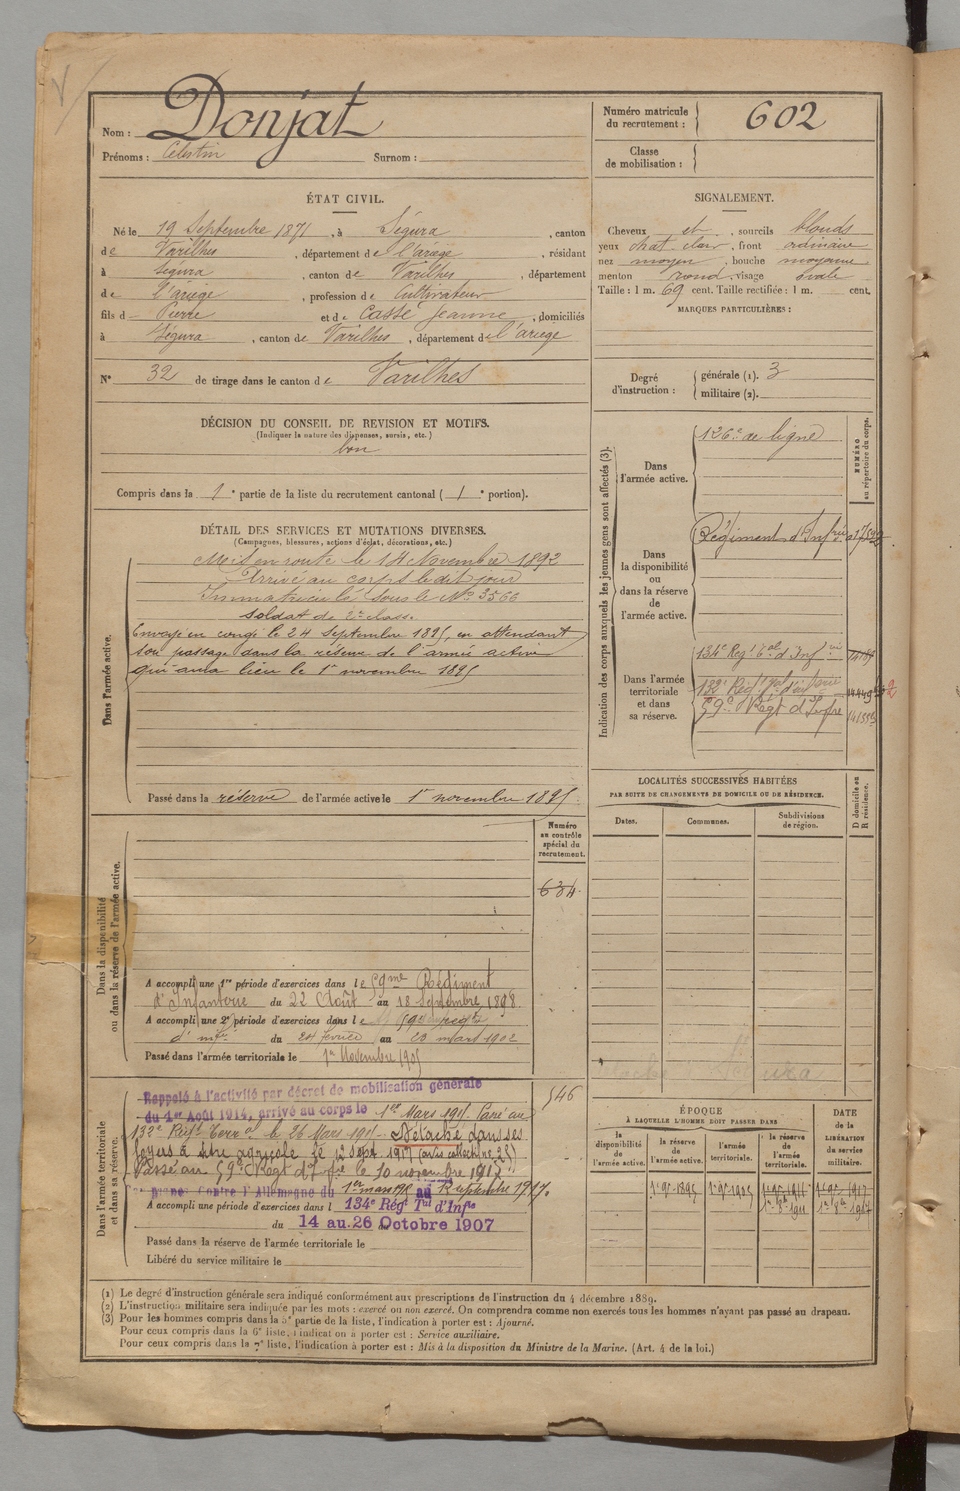 Nom : Donjat
Prénoms : Célestin Surnom :
Numéro matricule du recrutement : 602
Classe de mobilisation :
ÉTAT CIVIL.
Né le 19 Septembre 1871, à Ségura, canton
de Varilhes, département de l'ariège, résidant
à Ségura, canton de Varilhes, département
de l'ariège, profession de Cultivateur
fils de Pierre et de Casse Jeanne, domiciliés
à Ségura, canton de Varilhes, département de l'ariège
N° 32 de tirage dans le canton de Varilhes
SIGNALEMENT.
Cheveux et sourcils blonds
yeux chat. clair, front ordinaire
nez moyen, bouche moyenne
menton rond, visage ovale
Taille : 1 m. 69 cent. Taille rectifiée : 1 m. cent.
MARQUES PARTICULIÈRES :
Degré d'instruction : générale (1). 3
militaire (2).
DÉCISION DU CONSEIL DE REVISION ET MOTIFS.
(Indiquer la nature des dispenses, sursis, etc.)
bon
Compris dans la 1e partie de la liste du recrutement cantonal (1e portion).
DÉTAIL DES SERVICES ET MUTATIONS DIVERSES.
(Campagnes, blessures, actions d'éclat, décorations, etc.)
Dans l'armée active.
Mis en route le 14 Novembre 1892
Arrivé au corps le dit jour
Immatriculé sous le No 3566
Soldat de 2e classe.
Envoyé en congé le 24 Septembre 1895, en attendant
son passage dans la réserve de l'armée active
qui aura lieu le 1er novembre 1895
Passé dans la réserve de l'armée active le 1er novembre 1895.
Indication des corps auxquels les jeunes gens sont affectés (3).
NUMÉRO au répertoire du corps.
Dans l'armée active. 126e de ligne
Dans la disponibilité ou dans la réserve de l'armée active.
Régiment d'Infrie
Dans l'armée territoriale et dans sa réserve.
134e Régt Tal d'Infrie
132e Régt Tal d'infrie
59e Régt d'Infre
LOCALITÉS SUCCESSIVES HABITÉES
PAR SUITE DE CHANGEMENTS DE DOMICILE OU DE RÉSIDENCE.
Dates. Communes. Subdivisions de région. D domicile ou R résidence.
Dans la disponibilité ou dans la réserve de l'armée active.
Numéro au contrôle spécial du recrutement.
634
A accompli une 1re période d'exercices dans le 59me Régiment
d'Infanterie du 22 Août au 18 Septembre 1898
A accompli une 2e période d'exercices dans le 59e régt
d'infie du 24 février au 23 mars 1902
Passé dans l'armée territoriale le 1er Novembre 1905
Dans l'armée territoriale et dans sa réserve.
546
Rappelé à l'activité par décret de mobilisation générale
du 1er Août 1914, arrivé au corps le 1er Mars 1915. Passé au
132e Régt Terral le 26 Mars 1915. Détaché dans ses
foyers à titre agricole le 12 Sept 1917
Passé au 59e Régt d'Infie le 10 novembre 1917
Contre l'Allemagne du 1er mars 1915 au 12 septembre 1917.
A accompli une période d'exercices dans l 134e Régt Tal d'Infie
du 14 au 26 Octobre 1907
Passé dans la réserve de l'armée territoriale le
Libéré du service militaire le
ÉPOQUE
À LAQUELLE L'HOMME DOIT PASSER DANS
DATE de la LIBÉRATION du service militaire.
la disponibilité de l'armée active. la réserve de l'armée active. l'armée territoriale. la réserve de l'armée territoriale.
1er 9bre 1895 1er 9bre 1905 1er 9bre 1911 1er 9bre 1917
1er 8bre 1911 1er 8bre 1917
(1) Le degré d'instruction générale sera indiqué conformément aux prescriptions de l'instruction du 4 décembre 1889.
(2) L'instruction militaire sera indiquée par les mots : exercé ou non exercé. On comprendra comme non exercés tous les hommes n'ayant pas passé au drapeau.
(3) Pour les hommes compris dans la 5e partie de la liste, l'indication à porter est : Ajourné.
Pour ceux compris dans la 6e liste, l'indication à porter est : Service auxiliaire.
Pour ceux compris dans la 7e liste, l'indication à porter est : Mis à la disposition du Ministre de la Marine. (Art. 4 de la loi.)